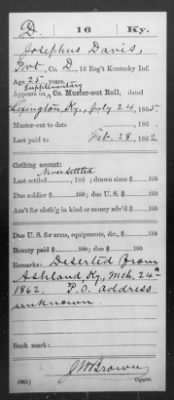 D. 16 Ky.
Josephus Davis,
Pvt, Co. D, 16 Reg't Kentucky Inf.
Age 25 years.
Supplementary
Appears on Co. Muster-out Roll, dated
Lexington Ky., July 24, 1865.
Muster-out to date 186 .
Last paid to Feb. 28, 1862
Clothing account:
Never settled
Last settled , 186 ; drawn since $ 100
Due soldier $ 100; due U. S. $ 100
Am't for cloth'g in kind or money adv'd $ 100
Due U. S. for arms, equipments, &c., $ 100
Bounty paid $ 100; due $ 100
Remarks: Deserted from
Ashland Ky., Mch. 24th
1862. P. O. address
unknown.
Book mark:
J W Brown
Copyist.